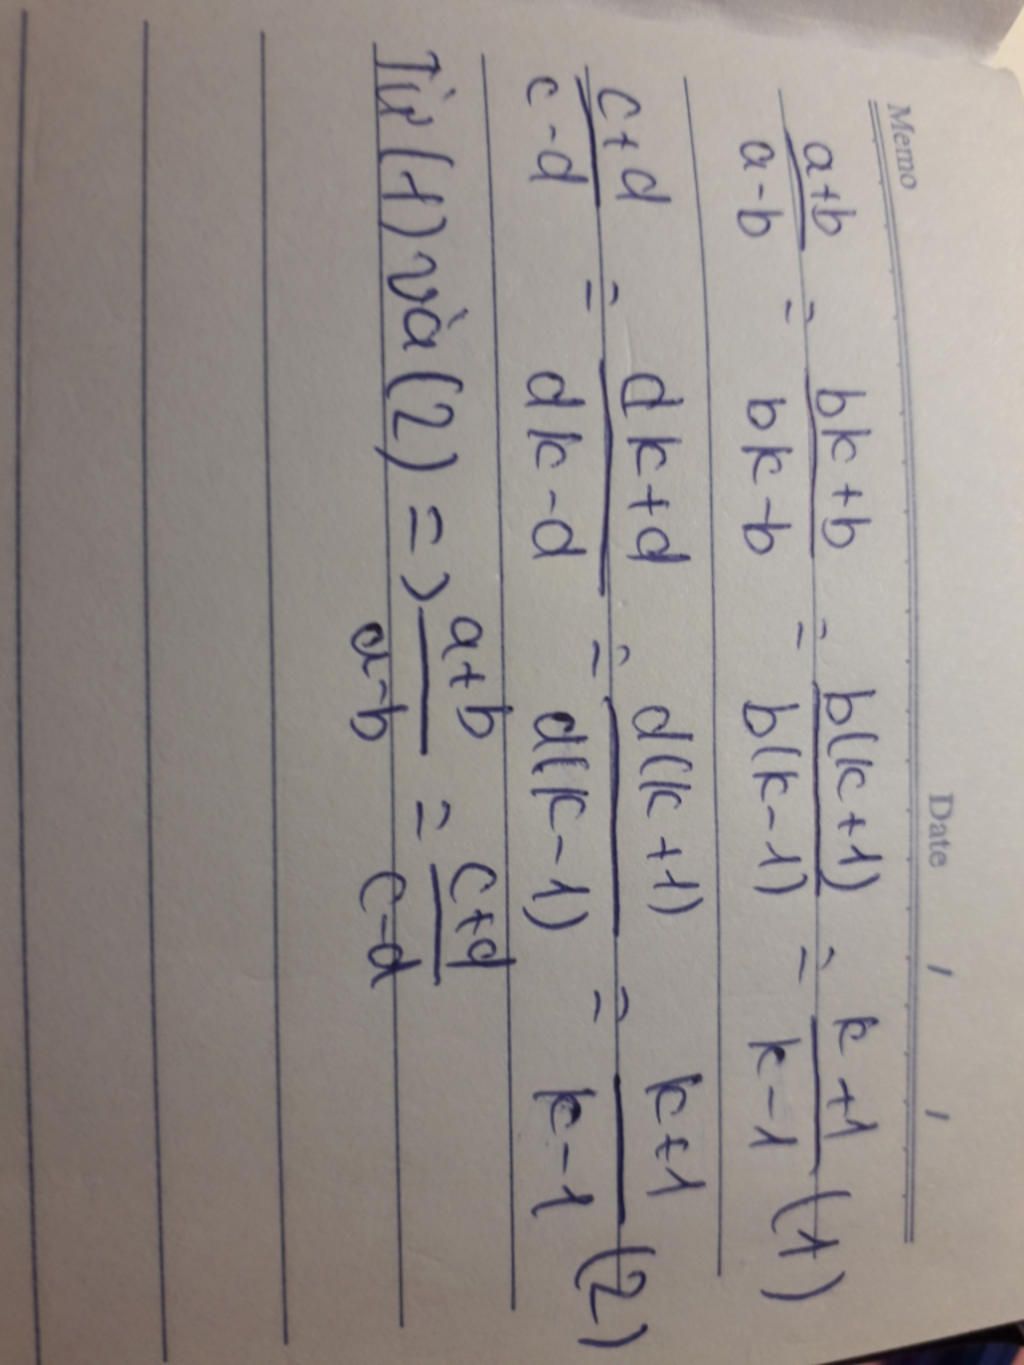 Memo Date / /
a+b / a-b = bk+b / bk-b = b(k+1) / b(k-1) = k+1 / k-1 (1)
c+d / c-d = dk+d / dk-d = d(k+1) / d(k-1) = k+1 / k-1 (2)
Từ (1) và (2) => a+b / a-b = c+d / c-d